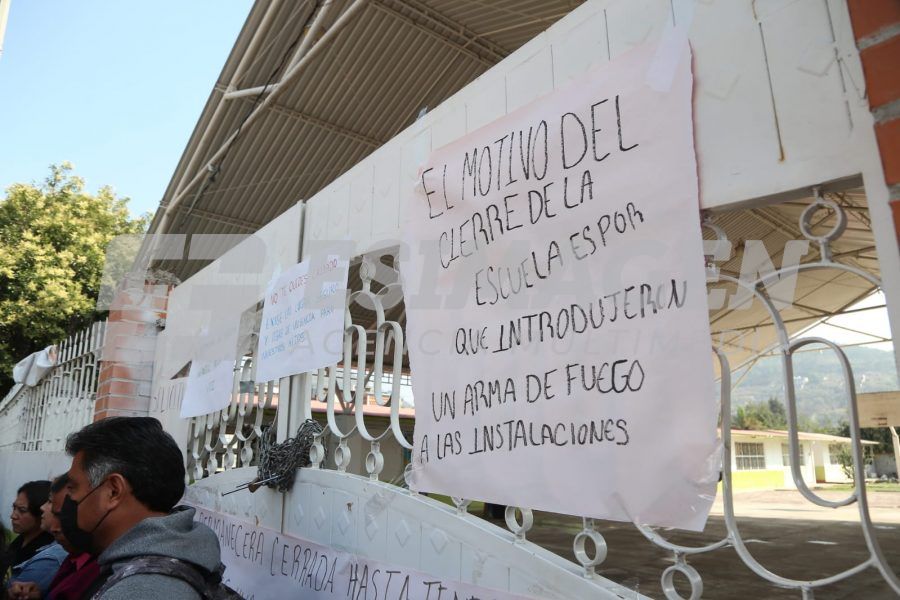 EL MOTIVO DEL
CIERRE DE LA
ESCUELA ES POR
QUE INTRODUJERON
UN ARMA DE FUEGO
A LAS INSTALACIONES
NO TE QUEDES CALLADO
VIOLENCIA PARA
PERMANECERA CERRADA HASTA
ESIMAGEN
AGENCIA MULTIMEDIA